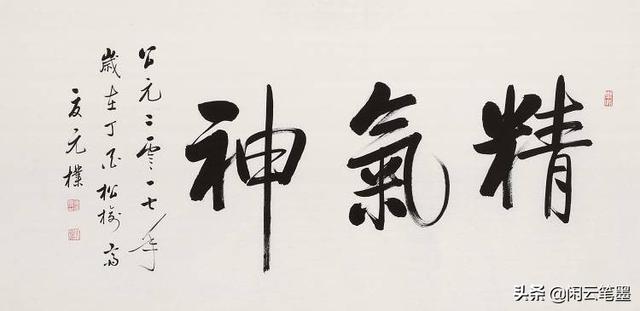 精氣神
公元二零一七年
歲在丁酉松 齋
元樸
头条 @闲云笔墨